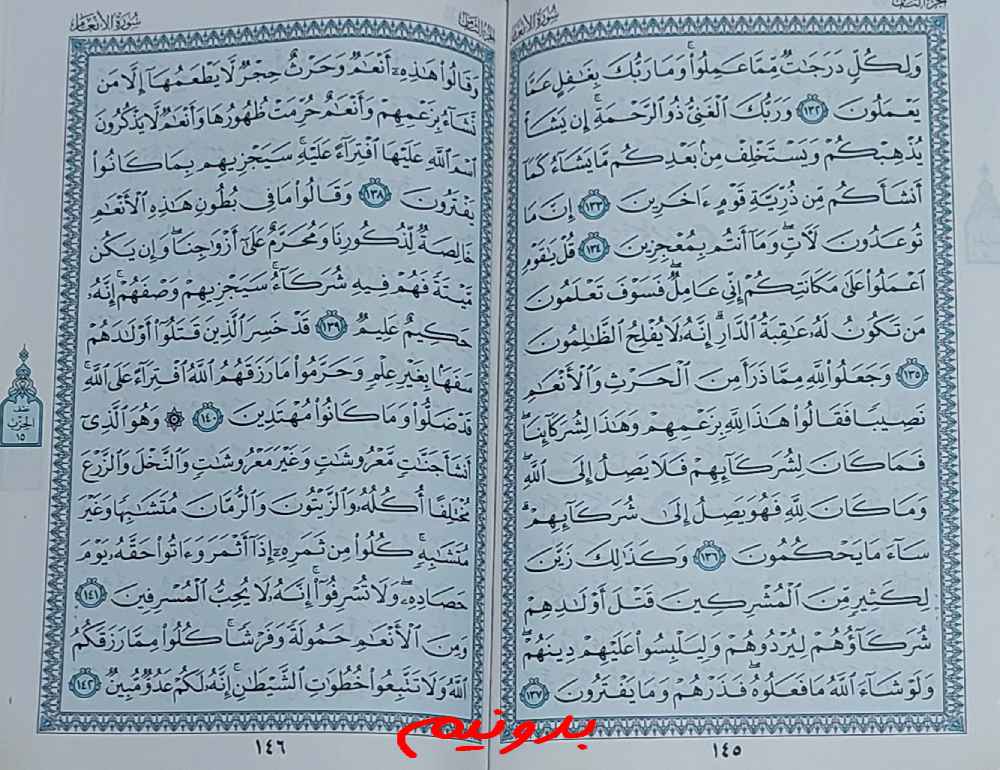 سُورَةُ الأَنْعَامِ
وَلِكُلٍّ دَرَجَاتٌ مِّمَّا عَمِلُوا۟ ۚ وَمَا رَبُّكَ بِغَافِلٍ عَمَّا
يَعْمَلُونَ ١٣٢ وَرَبُّكَ الْغَنِيُّ ذُو الرَّحْمَةِ ۚ إِن يَشَأْ
يُذْهِبْكُمْ وَيَسْتَخْلِفْ مِنۢ بَعْدِكُم مَّا يَشَآءُ كَمَآ
أَنشَأَكُم مِّن ذُرِّيَّةِ قَوْمٍ ءَاخَرِينَ ١٣٣ إِنَّ مَا
تُوعَدُونَ لَءَاتٍ ۖ وَمَآ أَنتُم بِمُعْجِزِينَ ١٣٤ قُلْ يَٰقَوْمِ
اعْمَلُوا۟ عَلَىٰ مَكَانَتِكُمْ إِنِّي عَامِلٌ ۖ فَسَوْفَ تَعْلَمُونَ
مَن تَكُونُ لَهُۥ عَٰقِبَةُ الدَّارِ ۗ إِنَّهُۥ لَا يُفْلِحُ الظَّٰلِمُونَ
١٣٥ وَجَعَلُوا۟ لِلَّهِ مِمَّا ذَرَأَ مِنَ الْحَرْثِ وَالْأَنْعَٰمِ
نَصِيبًا فَقَالُوا۟ هَٰذَا لِلَّهِ بِزَعْمِهِمْ وَهَٰذَا لِشُرَكَآئِنَا ۖ
فَمَا كَانَ لِشُرَكَآئِهِمْ فَلَا يَصِلُ إِلَى اللَّهِ ۖ
وَمَا كَانَ لِلَّهِ فَهُوَ يَصِلُ إِلَىٰ شُرَكَآئِهِمْ ۗ
سَآءَ مَا يَحْكُمُونَ ١٣٦ وَكَذَٰلِكَ زَيَّنَ
لِكَثِيرٍ مِّنَ الْمُشْرِكِينَ قَتْلَ أَوْلَٰدِهِمْ
شُرَكَآؤُهُمْ لِيُرْدُوهُمْ وَلِيَلْبِسُوا۟ عَلَيْهِمْ دِينَهُمْ ۖ
وَلَوْ شَآءَ اللَّهُ مَا فَعَلُوهُ ۖ فَذَرْهُمْ وَمَا يَفْتَرُونَ ١٣٧
١٤٥
سُورَةُ الأَنْعَامِ
وَقَالُوا۟ هَٰذِهِۦٓ أَنْعَٰمٌ وَحَرْثٌ حِجْرٌ لَّا يَطْعَمُهَآ إِلَّا مَن
نَّشَآءُ بِزَعْمِهِمْ وَأَنْعَٰمٌ حُرِّمَتْ ظُهُورُهَا وَأَنْعَٰمٌ لَّا يَذْكُرُونَ
اسْمَ اللَّهِ عَلَيْهَا افْتِرَآءً عَلَيْهِ ۚ سَيَجْزِيهِم بِمَا كَانُوا۟
يَفْتَرُونَ ١٣٨ وَقَالُوا۟ مَا فِي بُطُونِ هَٰذِهِ الْأَنْعَٰمِ
خَالِصَةٌ لِّذُكُورِنَا وَمُحَرَّمٌ عَلَىٰٓ أَزْوَٰجِنَا ۖ وَإِن يَكُن
مَّيْتَةً فَهُمْ فِيهِ شُرَكَآءُ ۚ سَيَجْزِيهِمْ وَصْفَهُمْ ۚ إِنَّهُۥ
حَكِيمٌ عَلِيمٌ ١٣٩ قَدْ خَسِرَ الَّذِينَ قَتَلُوٓا۟ أَوْلَٰدَهُمْ
سَفَهًۢا بِغَيْرِ عِلْمٍ وَحَرَّمُوا۟ مَا رَزَقَهُمُ اللَّهُ افْتِرَآءً عَلَى اللَّهِ ۚ
قَدْ ضَلُّوا۟ وَمَا كَانُوا۟ مُهْتَدِينَ ١٤٠ ۞ وَهُوَ الَّذِيٓ
أَنشَأَ جَنَّٰتٍ مَّعْرُوشَٰتٍ وَغَيْرَ مَعْرُوشَٰتٍ وَالنَّخْلَ وَالزَّرْعَ
مُخْتَلِفًا أُكُلُهُۥ وَالزَّيْتُونَ وَالرُّمَّانَ مُتَشَٰبِهًا وَغَيْرَ
مُتَشَٰبِهٍ ۚ كُلُوا۟ مِن ثَمَرِهِۦٓ إِذَآ أَثْمَرَ وَءَاتُوا۟ حَقَّهُۥ يَوْمَ
حَصَادِهِۦ ۖ وَلَا تُسْرِفُوٓا۟ ۚ إِنَّهُۥ لَا يُحِبُّ الْمُسْرِفِينَ ١٤١
وَمِنَ الْأَنْعَٰمِ حَمُولَةً وَفَرْشًا ۚ كُلُوا۟ مِمَّا رَزَقَكُمُ
اللَّهُ وَلَا تَتَّبِعُوا۟ خُطُوَٰتِ الشَّيْطَٰنِ ۚ إِنَّهُۥ لَكُمْ عَدُوٌّ مُّبِينٌ ١٤٢
١٤٦
نصف
الحزب
١٥
بدونیم